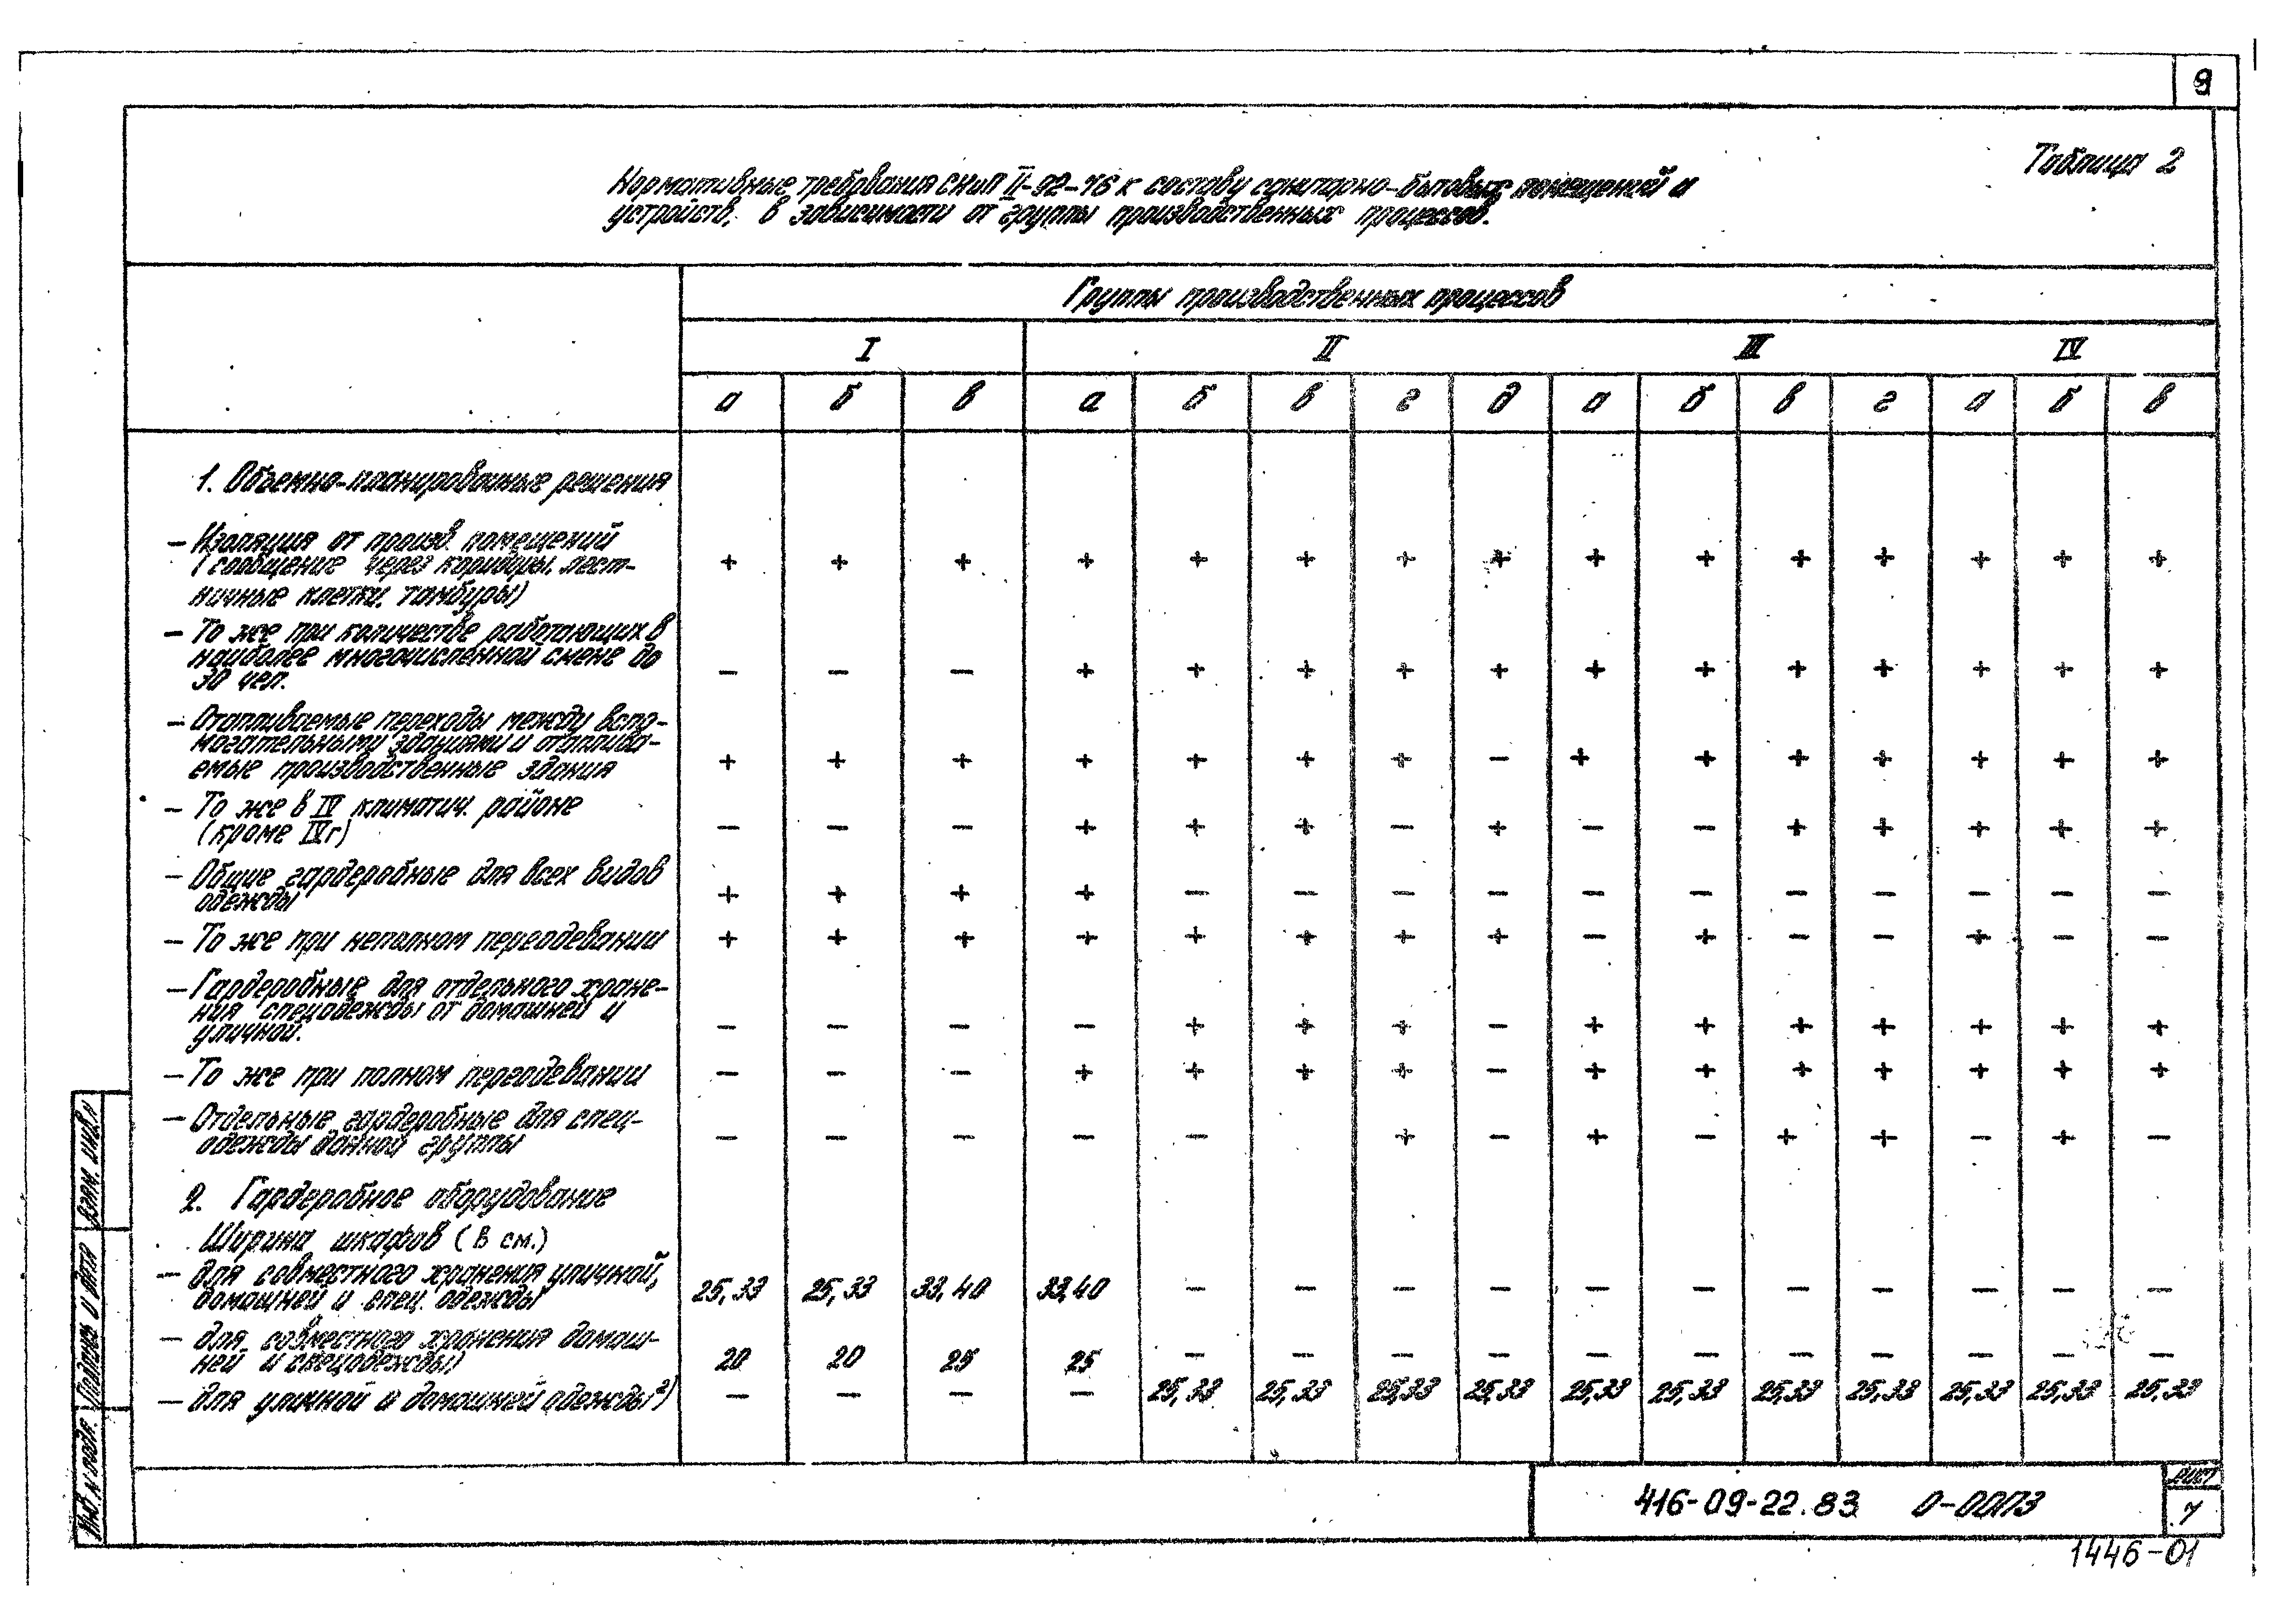 9
Таблица 2
Нормативные требования СНиП II-92-76 к составу санитарно-бытовых помещений и
устройств, в зависимости от группы производственных процессов.
Группы производственных процессов
I II III IV
а б в а б в г д а б в г а б в
1. Объемно-планировачные решения
– Изоляция от произв. помещений
(сообщение через коридоры, лест-
ничные клетки, тамбуры)
+ + + + + + + + + + + + + + +
– То же при количестве работающих в
наиболее многочисленной смене до
30 чел.
– – – + + + + + + + + + + + +
– Отапливаемые переходы между вспо-
могательными зданиями и отаплива-
емые производственные здания
+ + + + + + + – + + + + + + +
– То же в IV климатич. районе
(кроме IVг)
– – – + + + – + – – + + + + +
– Общие гардеробные для всех видов
одежды
+ + + + – – – – – – – – – – –
– То же при неполном переодевании
+ + + + + + + + – + – – + – –
– Гардеробные для отдельного хране-
ния спецодежды от домашней и
уличной.
– – – – + + + – + + + + + + +
– То же при полном переодевании
– – – + + + + – + + + + + + +
– Отдельные гардеробные для спец-
одежды данной группы
– – – – – + – + – + + – + –
2. Гардеробное оборудование
Ширина шкафов (в см.)
– для совместного хранения уличной,
домашней и спец. одежды
25,33 25,33 33,40 33,40 – – – – – – – – – – –
– для совместного хранения домаш-
ней и спецодежды)
20 20 25 25 – – – – – – – – – – –
– для уличной и домашней одежды²)
– – – – 25,33 25,33 25,33 25,33 25,33 25,33 25,33 25,33 25,33 25,33 25,33
Инв. N подл. Подпись и дата Взам. инв. N
416-09-22.83 0-00ПЗ
Лист
7
1446-01